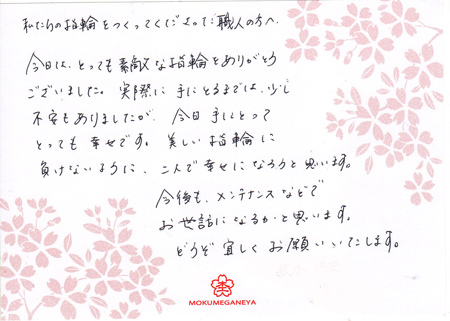 私たちの指輪をつくってくださった職人の方へ.
今日は、とっても素敵な指輪をありがとう
ございました。実際に手にとるまでは、少し
不安もありましたが、今日手にとって
とっても幸せです。美しい指輪に
負けないように、二人で幸せになろうと思います。
今後も、メンテナンスなどで
お世話になるかと思います。
どうぞ宜しくお願いいたします。
MOKUMEGANEYA